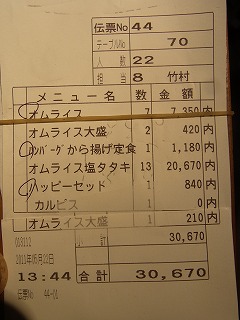 伝票No 44
テーブルNo 70
人数 22
担当 8 竹村
メニュー名 数 金額
オムライス 7 7,350内
オムライス大盛 2 420内
ハンバーグから揚げ定食 1 1,180内
オムライス塩タタキ 13 20,670内
ハッピーセット 1 840内
カルピス 1 0内
オムライス大盛 1 210内
003212 計 30,670
2011年05月22日
13:44 合計 30,670
伝票No 44-01